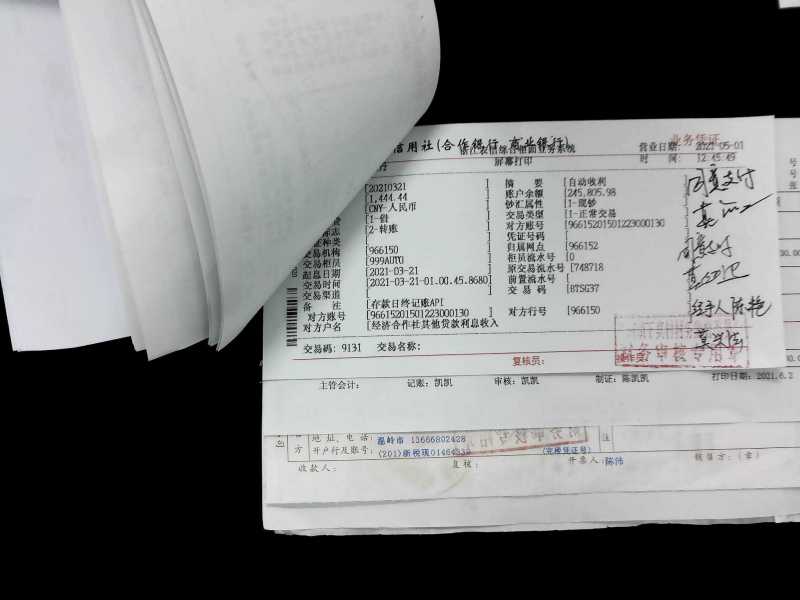 信用社(合作银行、商业银行)
业务凭证
浙江农信综合柜面业务系统
营业日期: 2021-05-01
屏幕打印
时 间: 12.45.49
[20210321 ] 摘 要 [自动收利
[1,444.44 ] 账户余额 [245,805.98
[CNY-人民币 ] 钞汇属性 [1-现钞
[1-借 ] 交易类型 [1-正常交易
[2-转账 ] 对方账号 [96615201501223000130
证种类 [ ] 凭证号码 [
交易机构 [966150 ] 归属网点 [966152
交易柜员 [999AUTO ] 柜员流水号 [0
起息日期 [2021-03-21 ] 原交易流水号 [748718
交易时间 [2021-03-21-01.00.45.8680] 前置流水号 [
交易渠道 [ ] 交 易 码 [BTSG37
备 注 [存款日终记账API
对方账号 [96615201501223000130 ] 对方行号 [966150
对方户名 [经济合作社其他贷款利息收入
同意支付
同意支付
经手人
交易码: 9131 交易名称:
复核员:
操作员:
主管会计: 记账: 凯凯 审核: 凯凯 制证: 陈凯凯 打印日期: 2021.6.2
方 地 址、电 话: 温岭市 13666802428
注
开户行及账号: (201)浙税现01464339
(完税凭证号)
收款人: 复核: 开票人: 陈炜 销售方: (章)